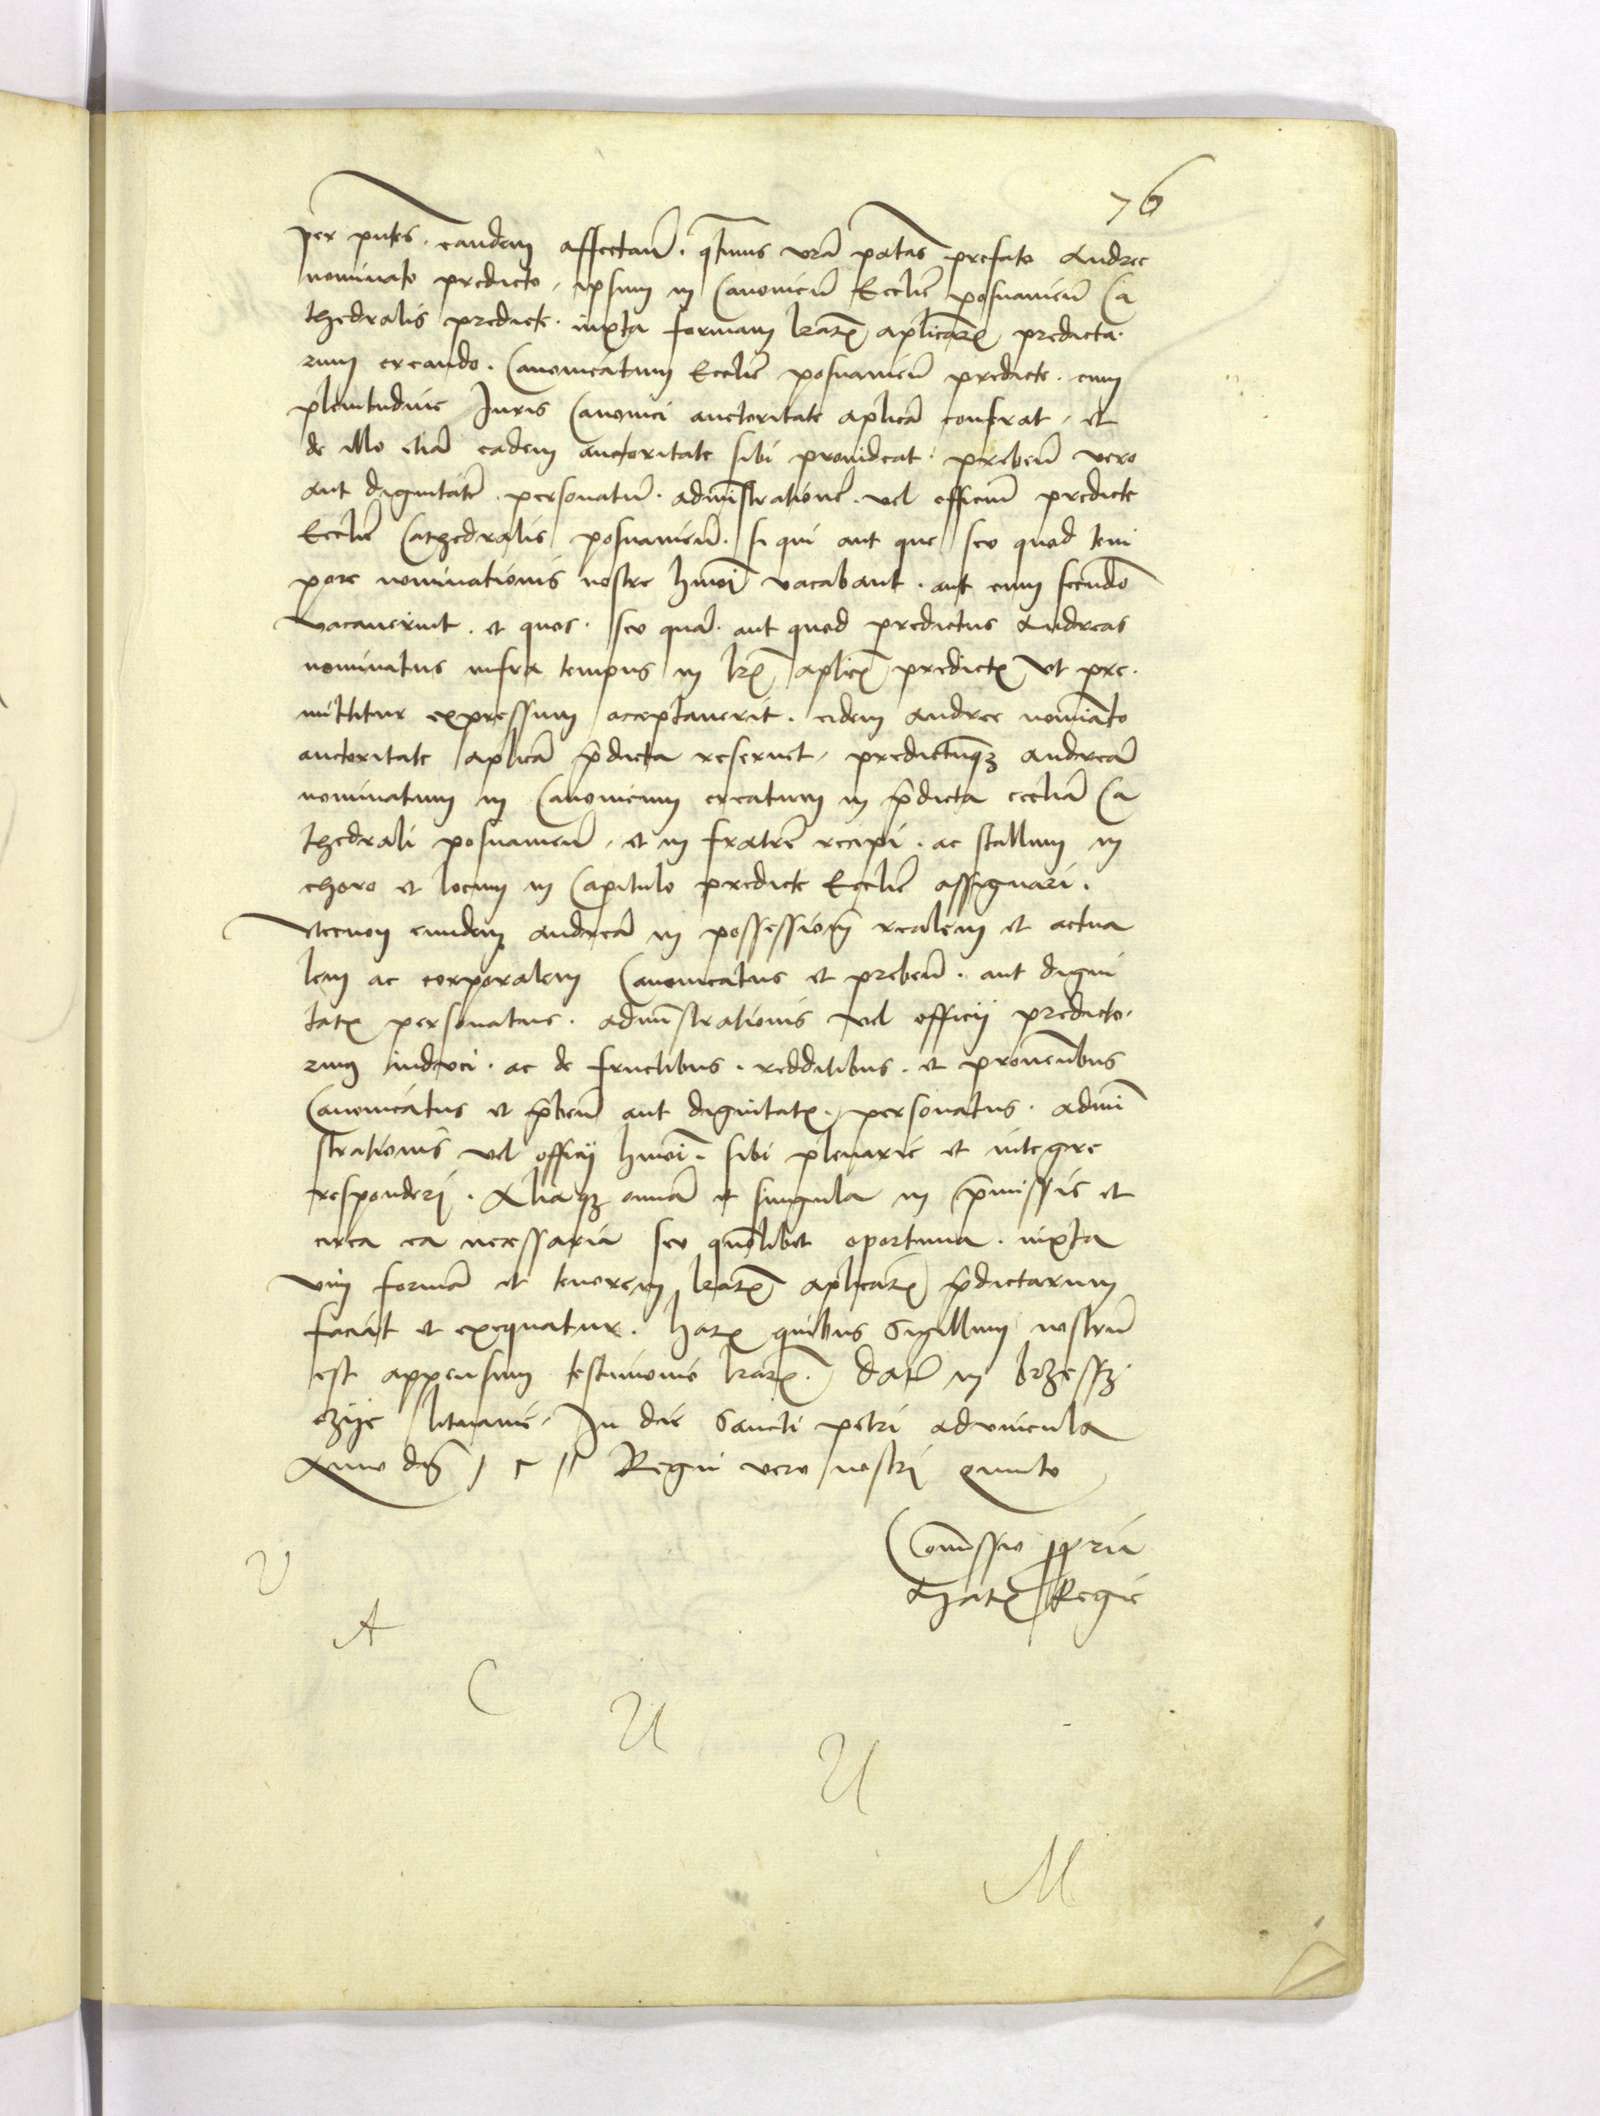 76
per pntes. eandem affectam̃. q̃tenus vrã pãtas prefato Andree
nominato predicto. ipsum in Canonicũ Ecclie posnanieñ Ca
thedralis predicte. iuxta formam lraꝝ aplicaꝝ predicta.
rum creando. Canonicatum Ecclie posnanieñ predicte. cum
plenitudine Iuris Canonici auctoritate aplica conferat. et
de illo etiã eadem auctoritate sibi prouideat. prebeñ vero
aut dignitatẽ. personatũ. admĩstrationẽ. vel officiũ predicte
Ecclie Cathedralis posnanieñ. si qui aut que seu quod tem
pore nominationis nostre hmõi vacabant. aut cum
vacauerint. et quos. seu quã. aut quod predictus Andreas
nominatus infra tempus in lrꝭ aplicꝭ predictꝭ Vt pre.
mittitur expressum acceptauerit. eidem Andree nomiãto
auctoritate aplicã p̃dicta reseruet. predictumqꝫ Andreã
nominatum in Canonicum creatum in p̃dicta ecclia Ca
thedrali posnanieñ. et in fratrẽ recipi. ac stallum in
choro et locum in Capitulo predicte Ecclie assignari.
Necnon eundem Andreã in possessionẽ realem et actua
lem ac corporalem Canonicatus et prebeñ. aut digni
tatꝭ personatus. admĩstrationis vel officij predicto.
rum induci. ac de fructibus. redditibus. et prouentibus
Canonicatus et p̃beñ aut dignitatꝭ. personatus. admĩ
strationis vel officij hmõi. sibi plenarie et integre
responderi. Aliaqꝫ omnia et singula in p̃missis et
circa ea necessaria seu quõlibet oportuna. iuxta
vim formã et tenorem lraꝝ aplicaꝝ p̃dictarum
faciat et exequatur. haꝝ quibus Sigillum nostrũ
est appensum testimonio lraꝝ. Datũ in brzessz
czye lituanie. In die Sancti petri ad vincula
Anno dnĩ Regni vero nostri quinto
Comissio ppria
Mattꝭ Regie
V
A
C
U
U
M